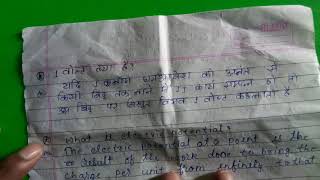 1 वोल्ट क्या है?
यदि 1 कुलॉम धनावेश को अनंत से
किसी बिंदु तक लाने में 1J कार्य सम्पन्न हो तो
उस बिंदु पर विद्युत विभव 1 वोल्ट कहलाता है
What is electric potential?
The electric potential at a point is the
of the work done to bring the
charge per unit from infinity to that